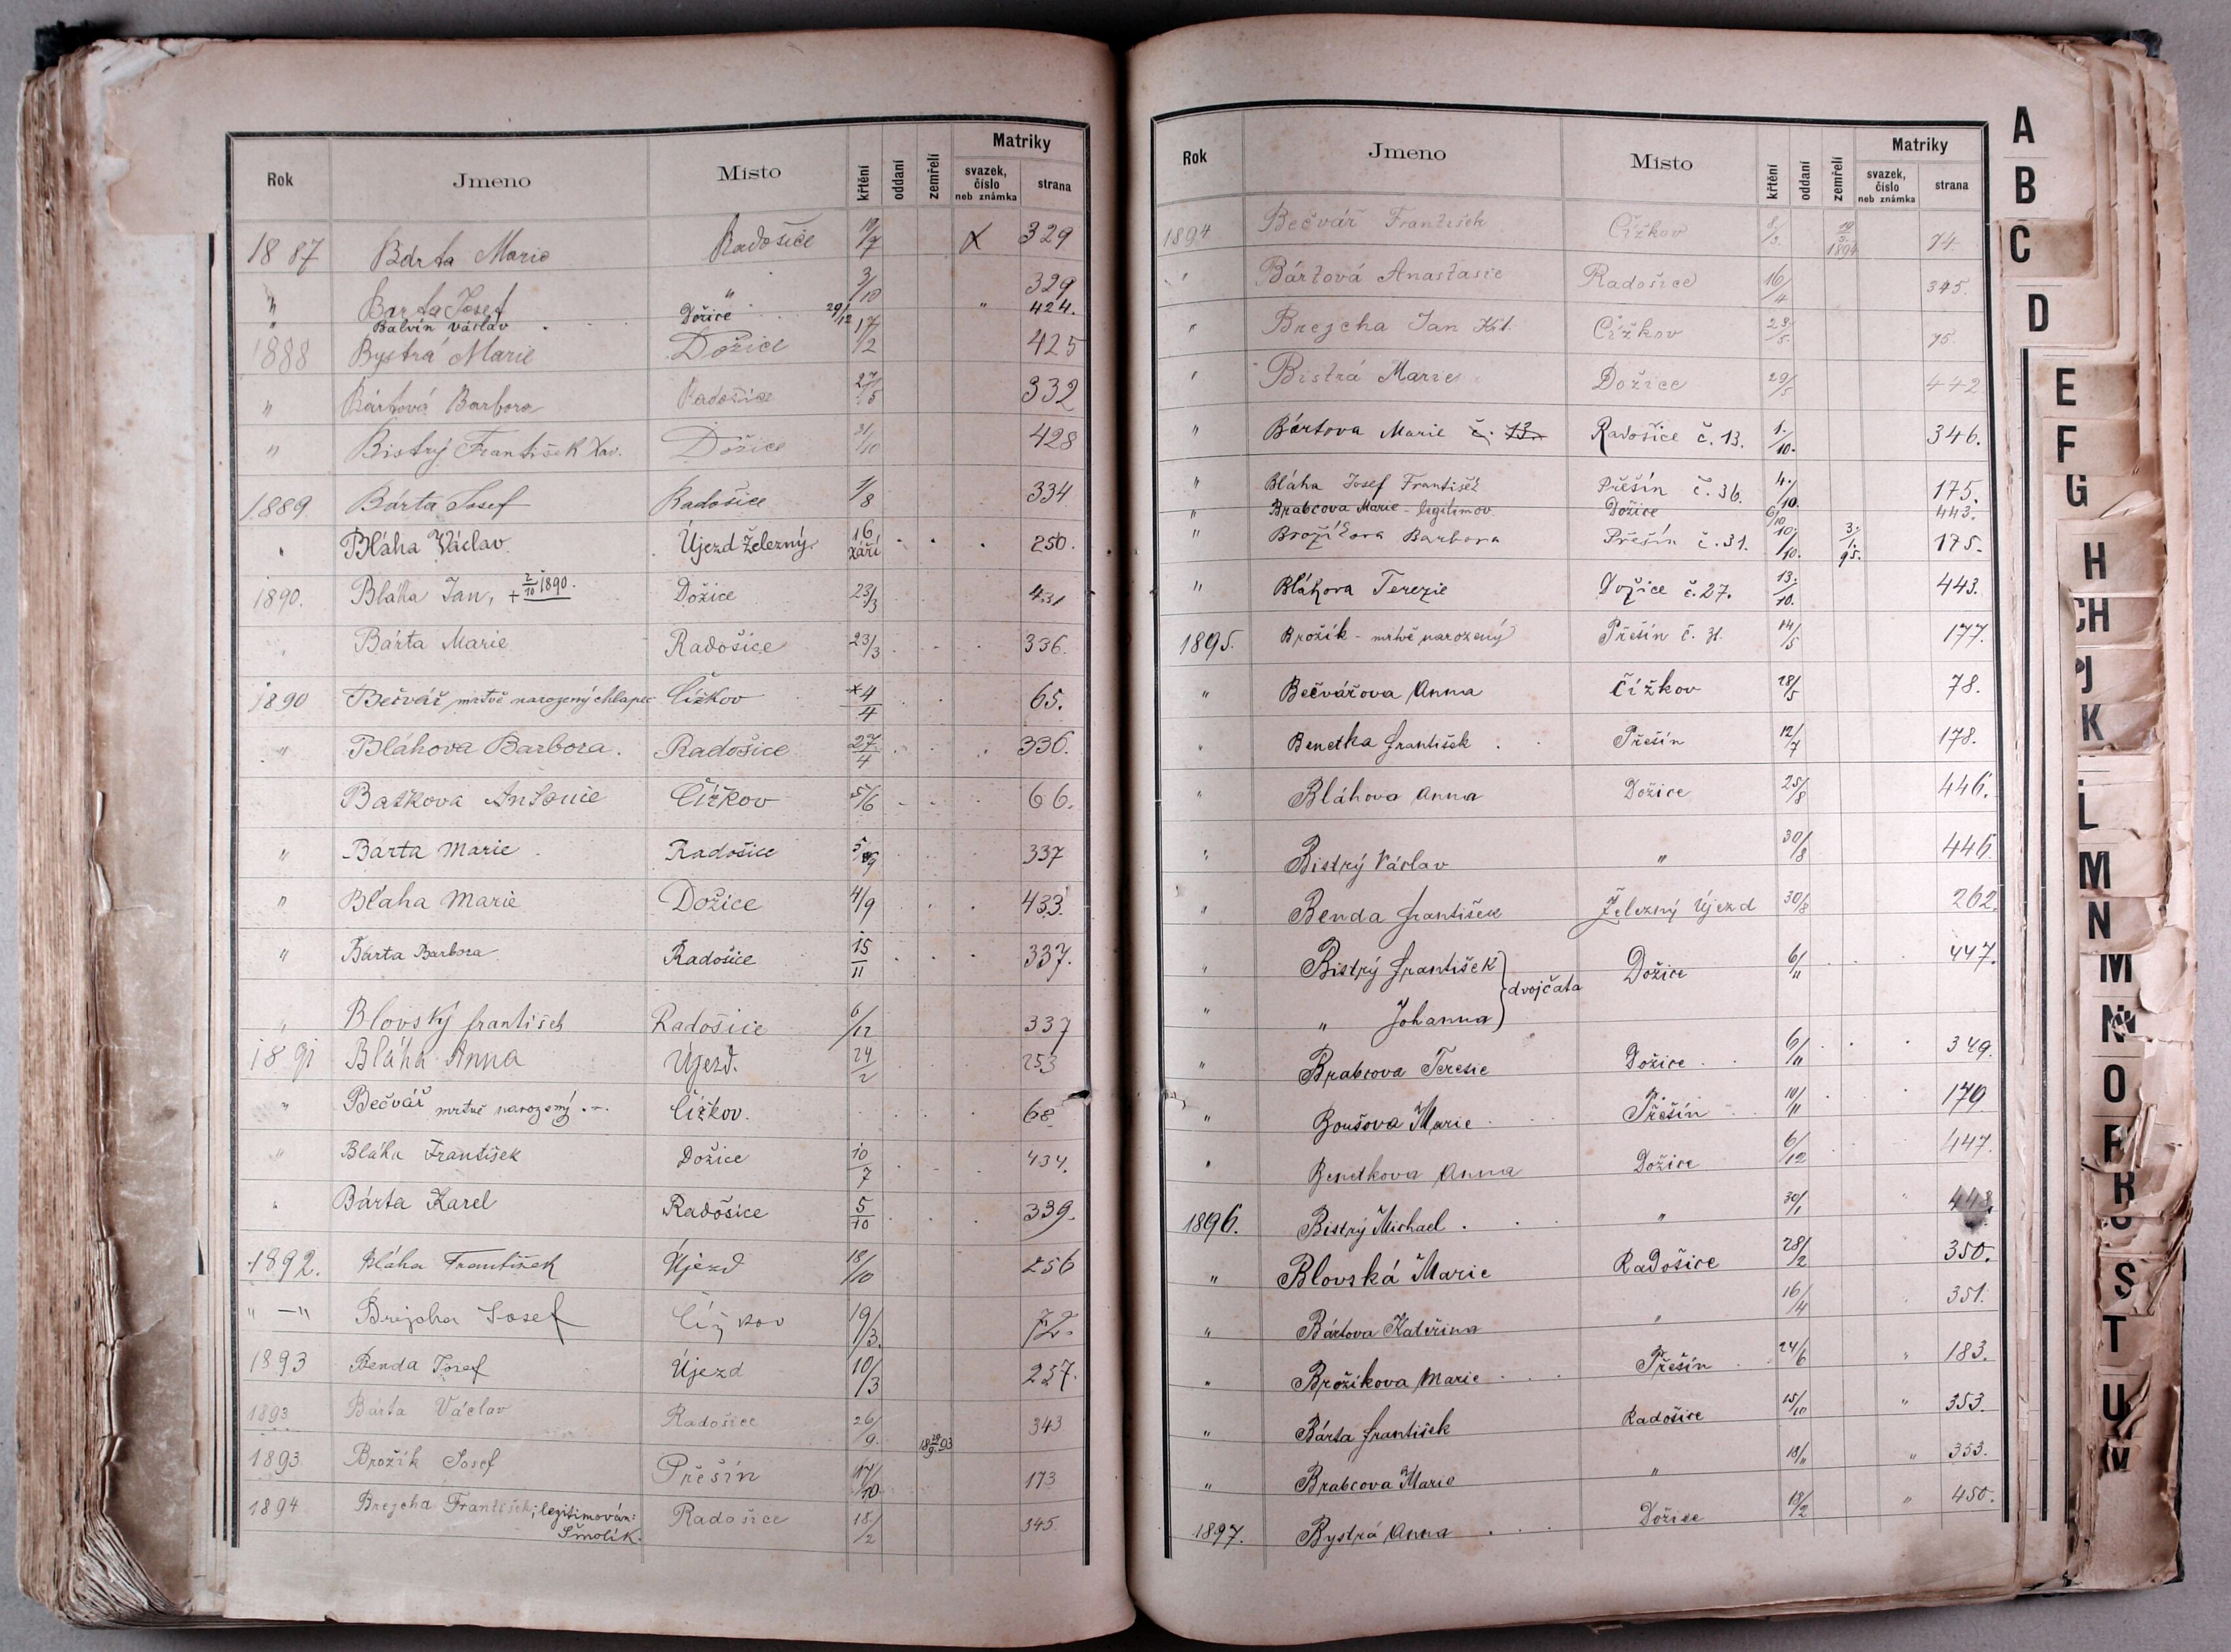 Rok Jmeno Místo křtění oddaní zemřelí Matriky
svazek, číslo neb známka strana
1887 Bárta Marie Radošice 19/7 X 329
" Barta Josef " 3/10 329
" Balvín Václav Dožice 29/12 " 424.
1888 Bystrá Marie Dožice 17/2 425
" Bártová Barbora Radošice 27/5 332
" Bistrý František Xav. Dožice 31/10 428
1889 Bárta Josef Radošice 1/8 334
" Bláha Václav Újezd Železný 16 září 250.
1890. Bláha Jan, + 2/10 1890. Dožice 23/3 431
" Bárta Marie Radošice 23/3 336.
1890 Bečvář mrtvě narozený chlapec Čížkov *4/4 65.
" Bláhova Barbora. Radošice 27/4 336.
Baťkova Antonie Čížkov 5/6 66.
" Bárta Marie Radošice 5/9 337
" Bláha Marie Dožice 4/9 433.
" Bárta Barbora Radošice 15/11 337.
" Blovský František Radošice 6/12 337
1891 Bláha Anna Újezd. 24/2 253
" Bečvář mrtvě narozený Čížkov. 68
" Bláha František Dožice 10/7 434.
" Bárta Karel Radošice 5/10 339.
1892. Bláha František Újezd 18/10 256
" — " Brejcha Josef Čížkov 19/3. 72.
1893 Benda Josef Újezd 10/3 257.
1893 Bárta Václav Radošice 26/9. 343
1893 Brožík Josef Přešín 17/10 18 28/9 93 173
1894 Brejcha František; legitimován:
Šmolík. Radošice 18/2 345
Rok Jmeno Místo křtění oddaní zemřelí Matriky
svazek, číslo neb známka strana
1894 Bečvář František Čížkov 8/2. 1894 74.
" Bártová Anastasie Radošice 16/4 345.
" Brejcha Jan Čížkov 23/5. 75.
" Bistrá Marie Dožice 29/5 442
" Bártova Marie č. 13. Radošice č. 13. 1./10. 346.
" Bláha Josef František Přešín č. 36. 4./10. 175.
" Brabcova Marie - legitimov. Dožice 6/10 443.
" Brožíkova Barbora Přešín č. 31. 10./10. 3./1. 95. 175.
" Bláhova Terezie Dožice č. 27. 13./10. 443.
1895. Brožík - mrtvě narozený Přešín č. 31. 14/5 177.
" Bečvářova Anna Čížkov 28/5 78.
" Benetka František Přešín 12/7 178.
" Bláhova Anna Dožice 25/8 446.
" Bistrý Václav " 30/8 446.
" Benda František Železný Újezd 30/8 262.
" Bistrý František Dožice 6/11 447.
dvojčata
" " Johanna
" Brabcova Teresie Dožice 6/11 349.
" Boušova Marie Přešín 10/11 179.
" Benetkova Anna Dožice 6/12 447.
1896. Bistrý Michael " 30/1 " 448.
" Blovská Marie Radošice 28/2 350.
" Bártova Kateřina " 16/4 351.
" Brožíkova Marie Přešín 24/6 " 183.
" Bárta František Radošice 15/10 " 353.
" Brabcova Marie " 18/11 " 353.
1897. Bystrá Anna Dožice 18/2 " 450.
A
B
C
D
E
F
G
H
CH
J
K
L
M
N
M
N
O
P
R
S
T
U